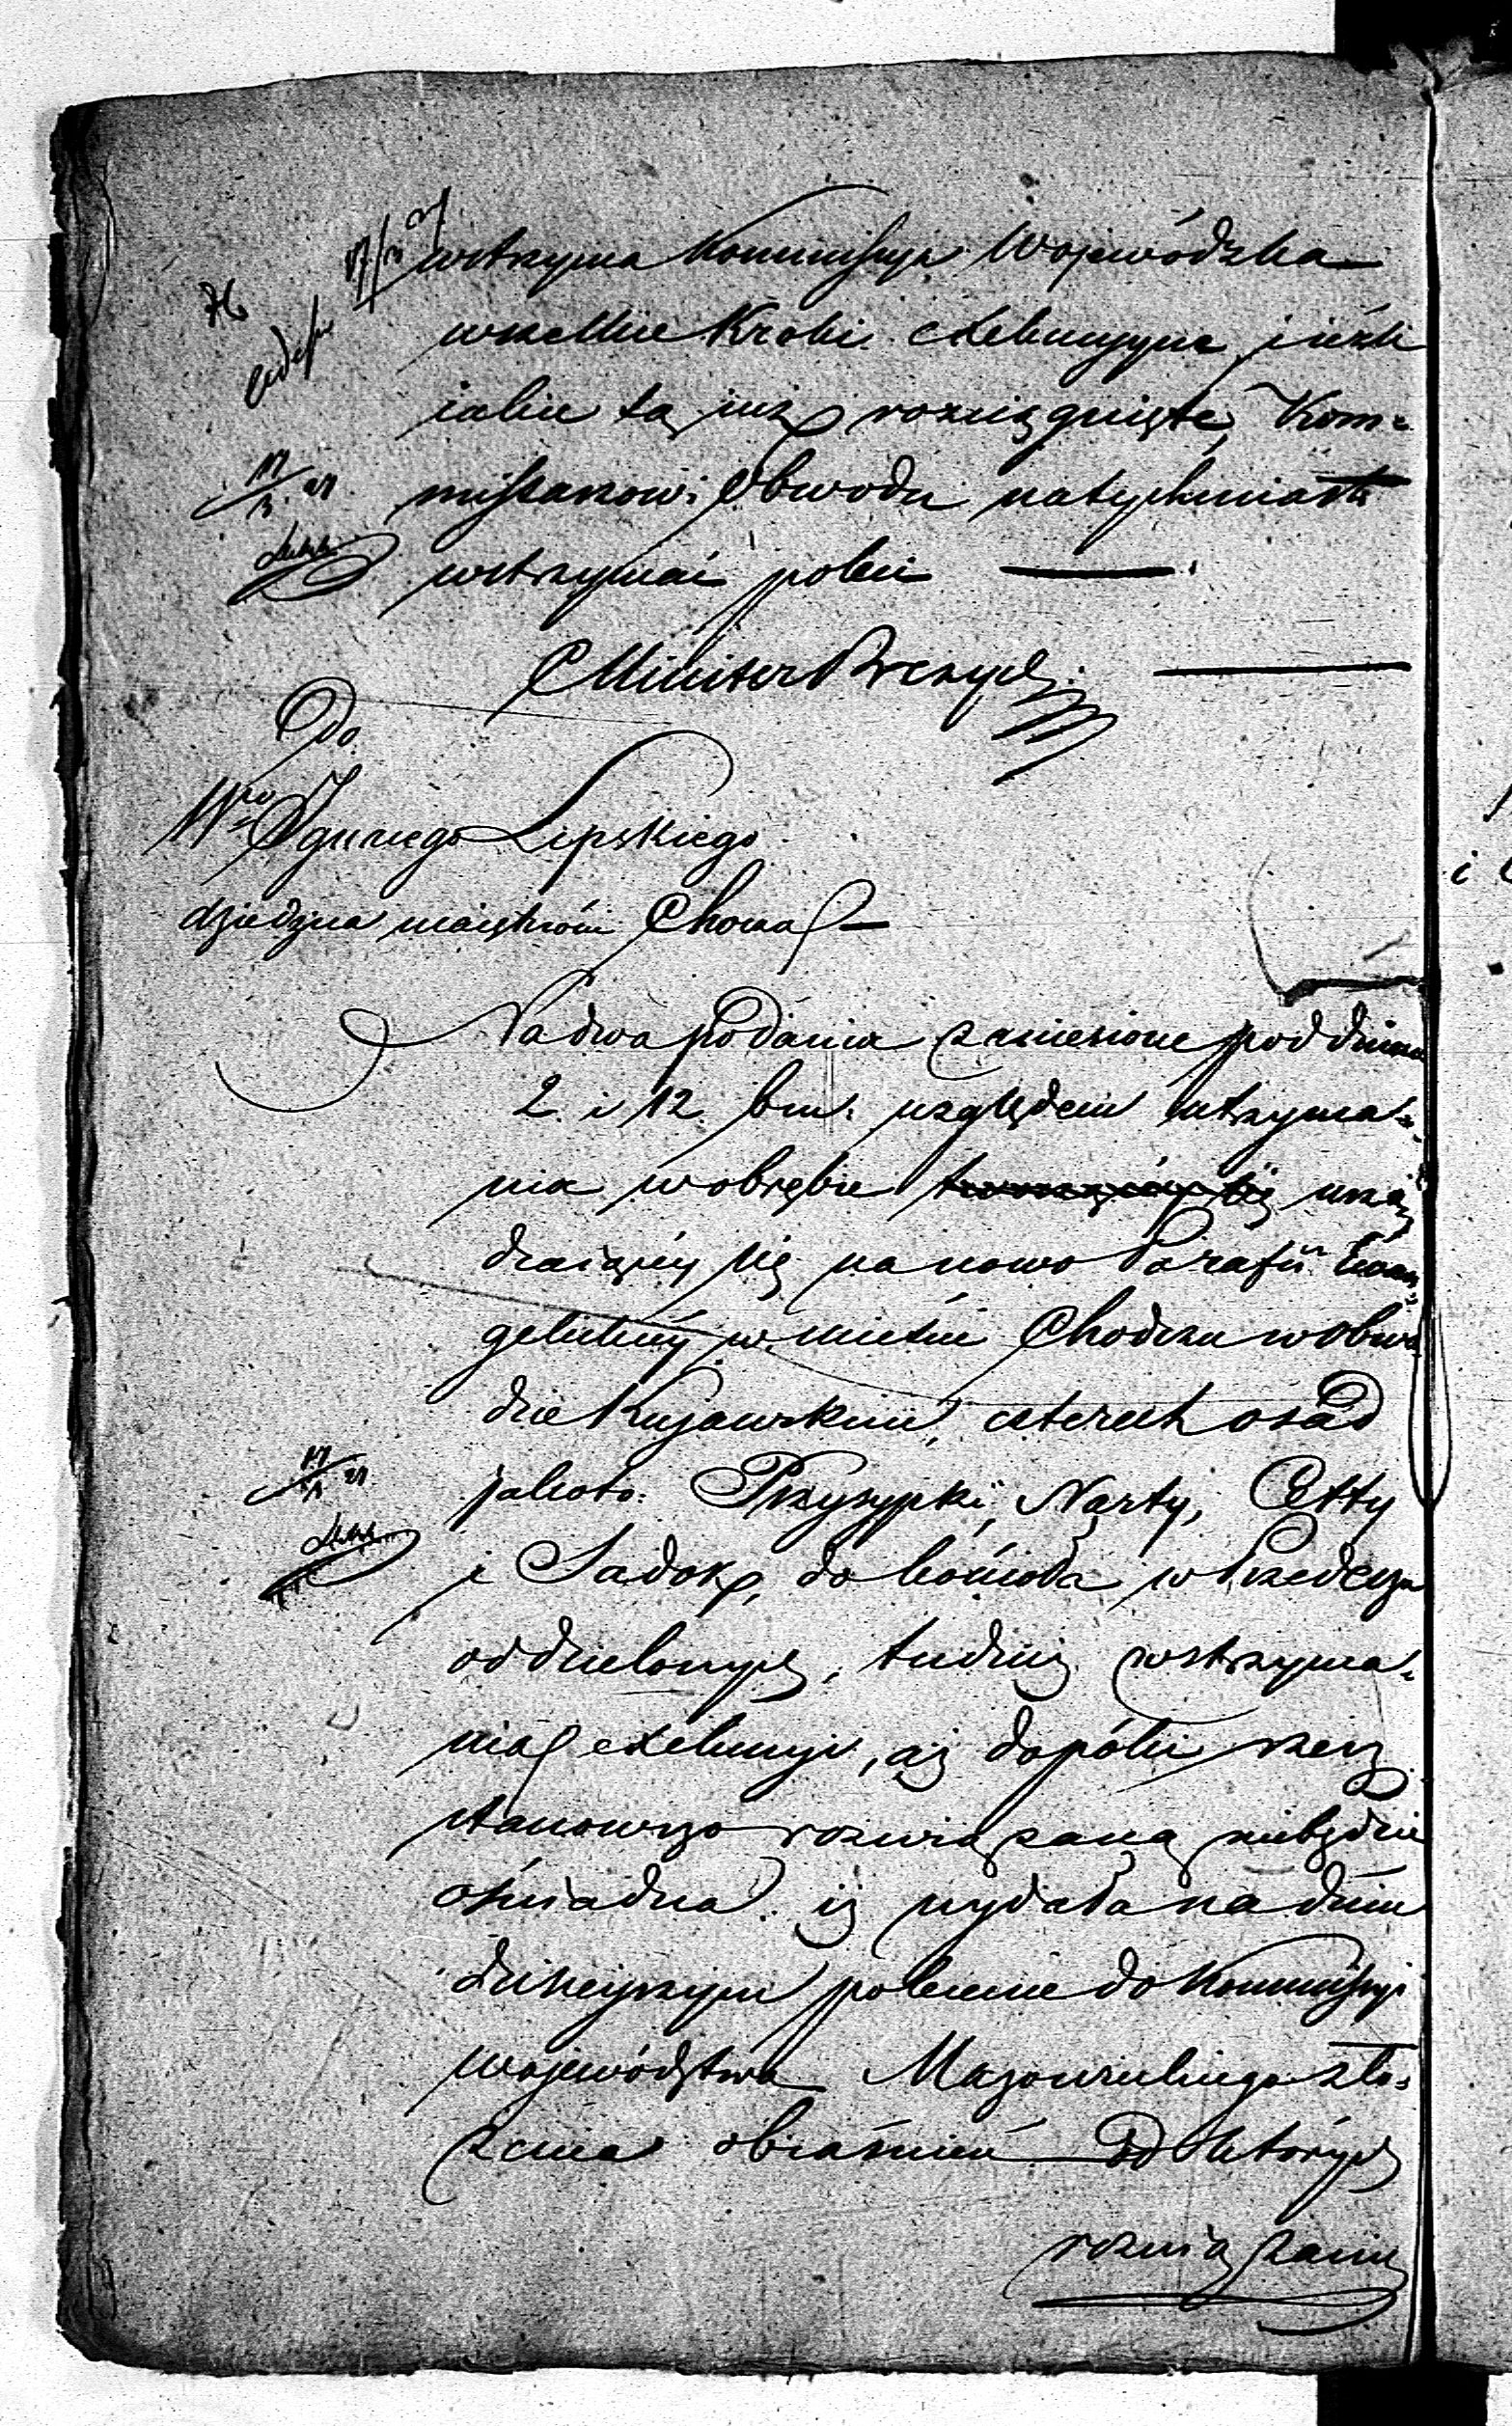 wstrzyma Kommissyja Wojewódzka
wszelkie kroki exekucyjne, ieżli
iakie są iuż rozciągnięte, Kom=
missarzowi Obwodu natychmiast
wstrzymać poleci
Minister Prezyd:
Do
Wgo Ignacego Lipskiego
dziedzica maiętności Choma
Na dwa podania zaniesione pod dniem
2 i 12 bm. względem utrzyma=
nia w obrębie urzą=
dzaiącéy się na nowo Parafii Ewan=
gelickiéy w mieście Chodczu w obwo=
dzie Kujawskim, czterech osad
jakoto: Przysypki, Narty, Cetty
i Sadok, do kościoła w Przedczu
oddzielonych, tudzież wstrzyma=
nia exekucyi, aż dopóki rzecz
stanowczo rozwiązaną niebędzie
oświadcza iż wydała na dniu
dzisieyszym polecenie do Kommissyi
województwa Mazowieckiego zło=
żenia obiaśnień od których
rozwiązanie